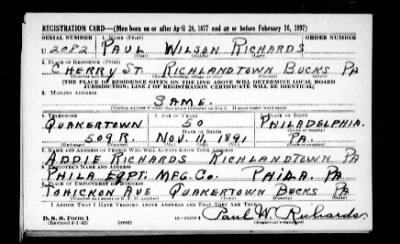 REGISTRATION CARD—(Men born on or after April 28, 1877 and on or before February 16, 1897)
SERIAL NUMBER 1. NAME (Print)
U 2082 PAUL WILSON RICHARDS
2. PLACE OF RESIDENCE (Print)
CHERRY ST. RICHLANDTOWN BUCKS PA
[THE PLACE OF RESIDENCE GIVEN ON THE LINE ABOVE WILL DETERMINE LOCAL BOARD
JURISDICTION; LINE 2 OF REGISTRATION CERTIFICATE WILL BE IDENTICAL]
3. MAILING ADDRESS
SAME.
4. TELEPHONE 5. AGE IN YEARS 6. PLACE OF BIRTH
QUAKERTOWN 50 PHILADELPHIA.
DATE OF BIRTH
509R. NOV. 11, 1891 PA.
7. NAME AND ADDRESS OF PERSON WHO WILL ALWAYS KNOW YOUR ADDRESS
ADDIE RICHARDS RICHLANDTOWN PA
8. EMPLOYER'S NAME AND ADDRESS
PHILA EQPT. MFG. CO. PHILA. PA
9. PLACE OF EMPLOYMENT OR BUSINESS
TOHICKON AVE QUAKERTOWN BUCKS PA
I AFFIRM THAT I HAVE VERIFIED ABOVE ANSWERS AND THAT THEY ARE TRUE.
D. S. S. Form 1
Paul W. Richards